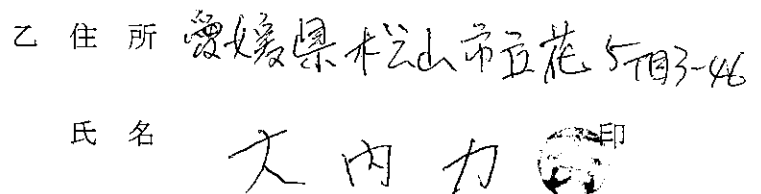 乙 住 所 愛媛県松山市立花5丁目3-46
氏 名 大内力 印